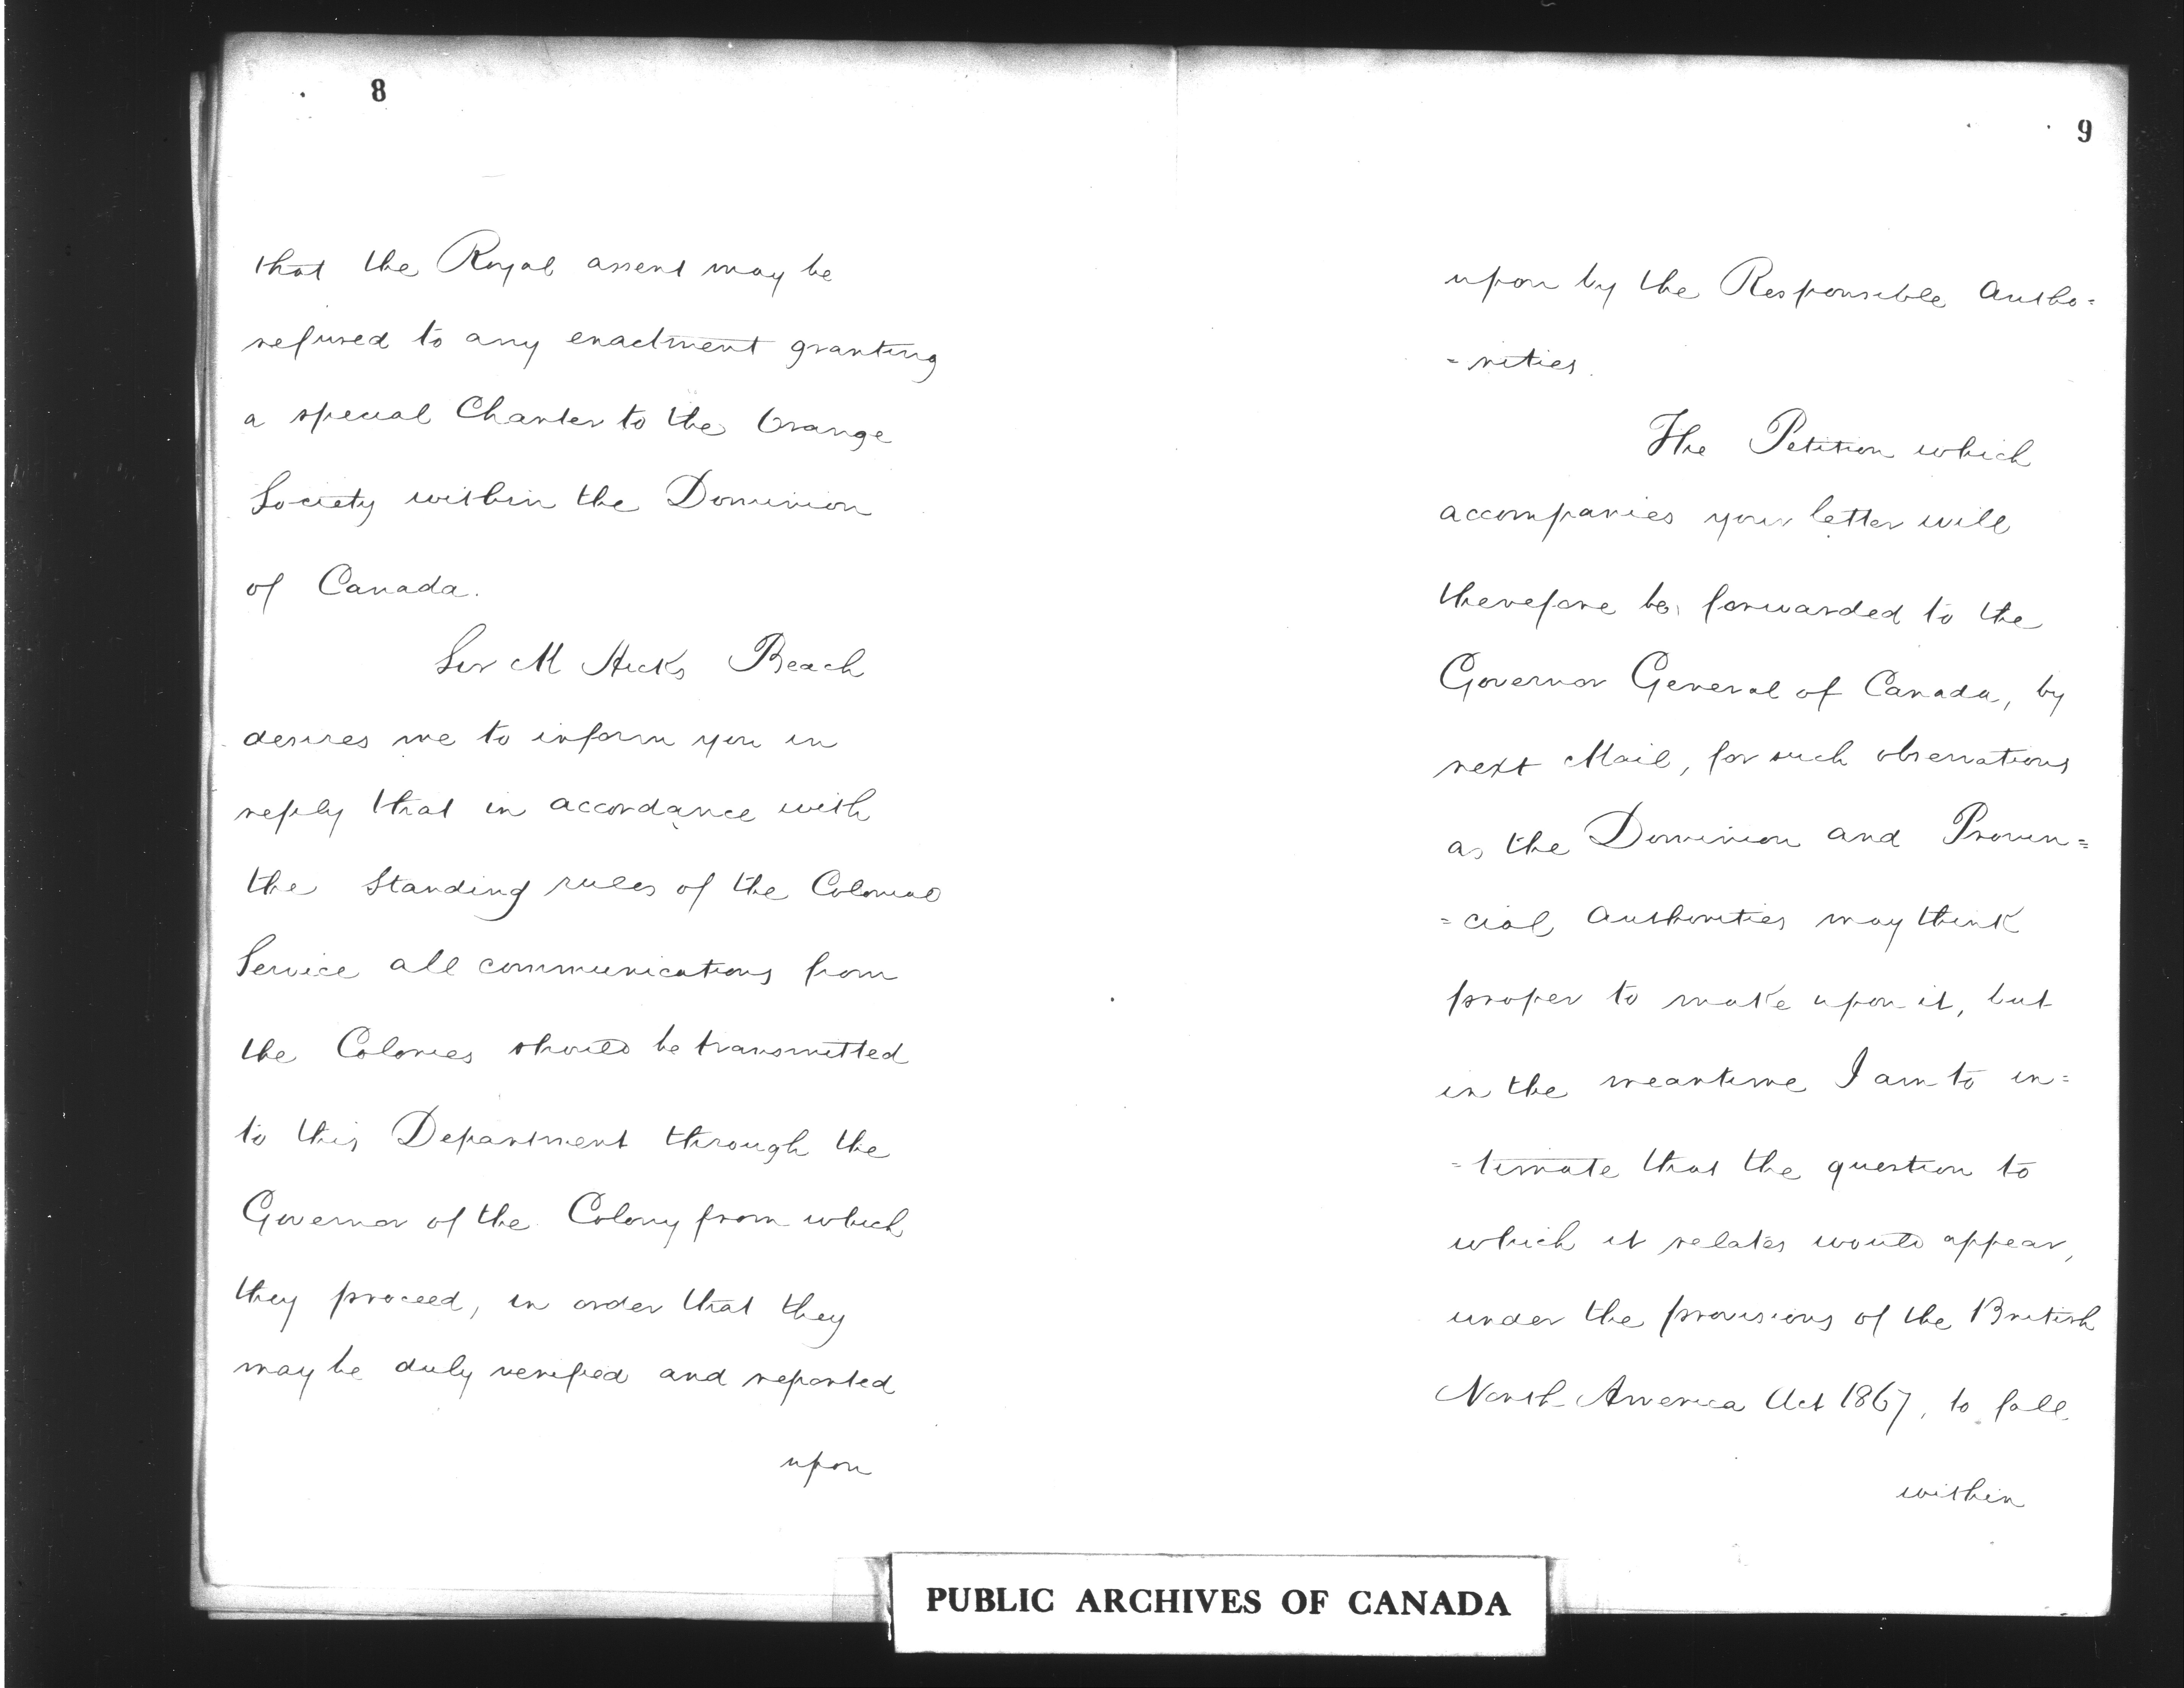 8
that the Royal assent may be
refused to any enactment granting
a special Charter to the Orange
Society within the Dominion
of Canada.
Sir M Hicks Beach
desires me to inform you in
reply that in accordance with
the Standing rules of the Colonial
Service all communications from
the Colonies should be transmitted
to this Department through the
Governor of the Colony from which
they proceed, in order that they
may be duly verified and reported
upon
9
upon by the Responsible Autho=
=rities.
The Petition which
accompanies your letter will
therefore be forwarded to the
Governor General of Canada, by
next Mail, for such observations
as the Dominion and Provin=
=cial Authorities may think
proper to make upon it, but
in the meantime I am to in=
=timate that the question to
which it relates would appear,
under the provisions of the British
North America Act 1867, to fall
within
PUBLIC ARCHIVES OF CANADA